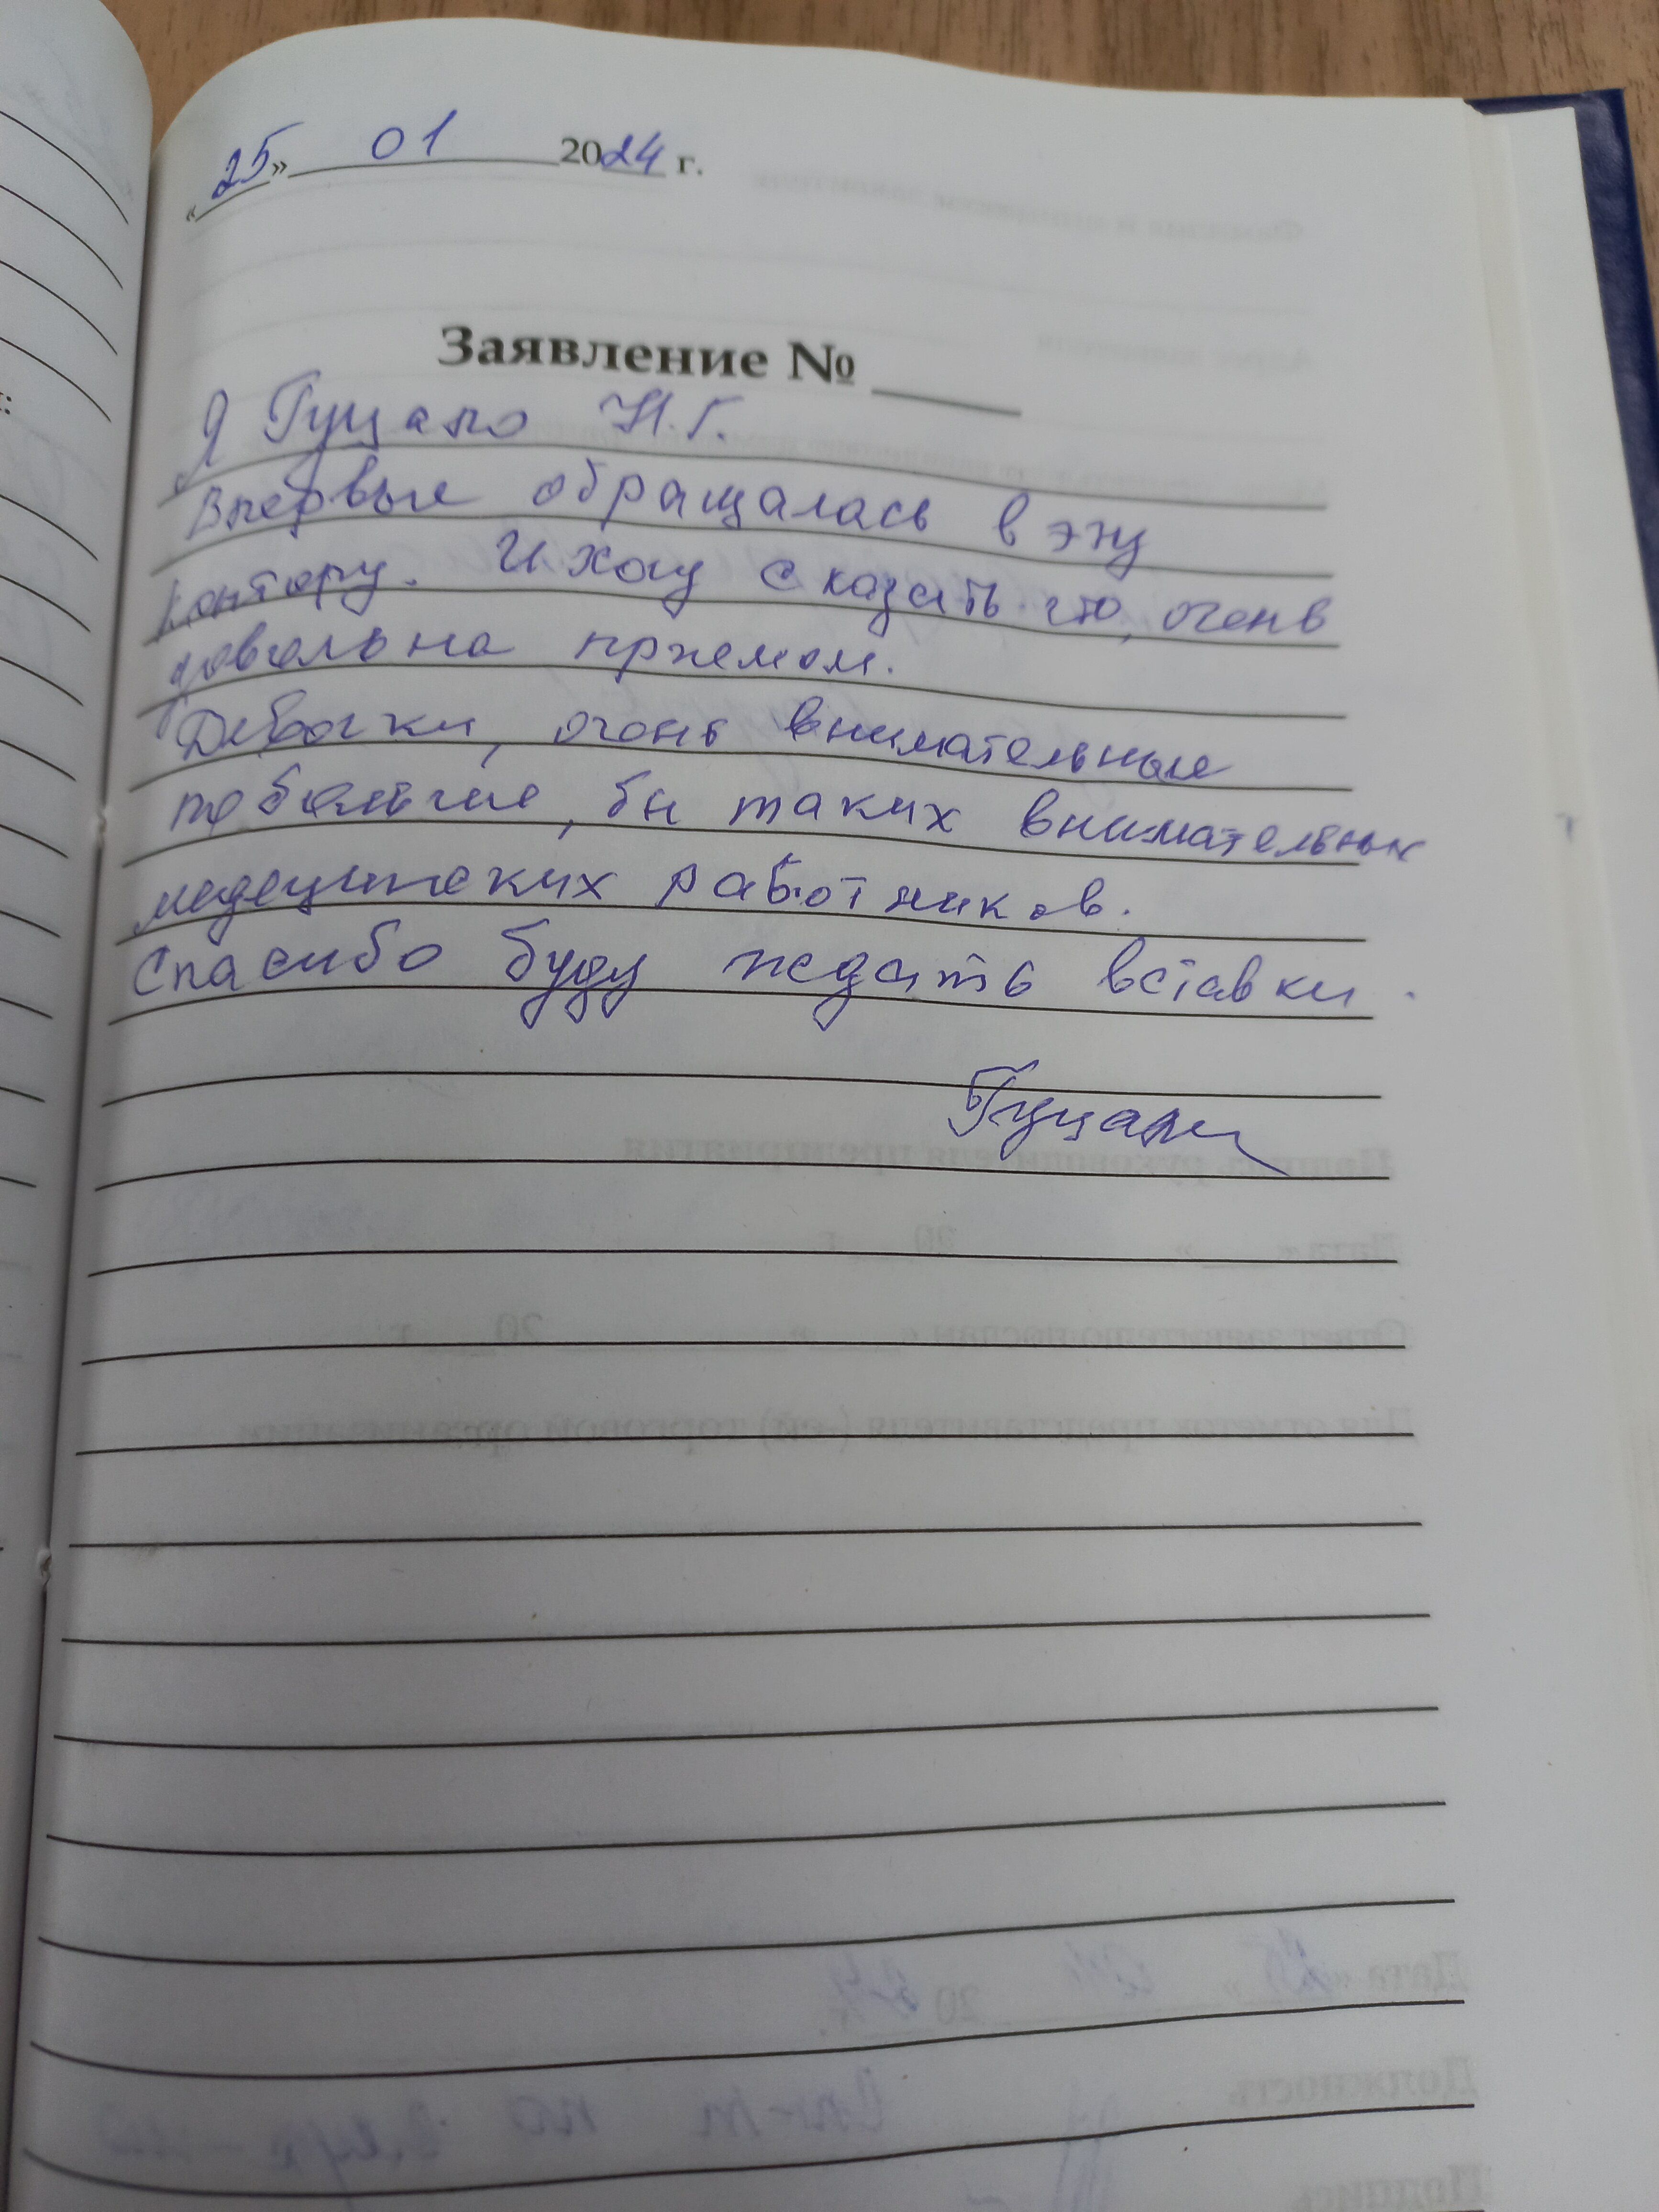 «25» 01 2024 г.
Заявление № ____
Я Гуцало Н.Г.
Впервые обращалась в эту
контору. И хочу сказать что, очень
довольна приемом.
Девочки, очень внимательные
побольше, бы таких внимательных
медецинских работников.
Спасибо буду ждать вставки.